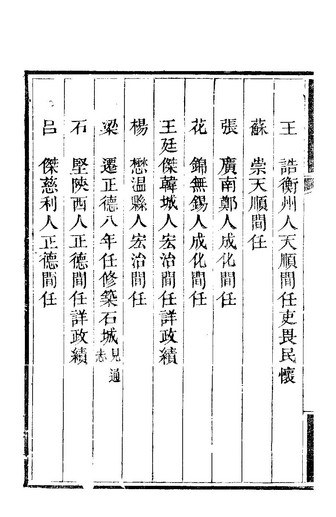 王　誥衡州人天順間任吏畏民懷
蘇　崇天順間任
張　廣南鄭人成化間任
花　錦無錫人成化間任
王廷傑韓城人宏治間任詳政績
楊　懋溫縣人宏治間任
梁　遷正德八年任修築石城見通志
石　堅陝西人正德間任詳政績
呂　傑慈利人正德間任